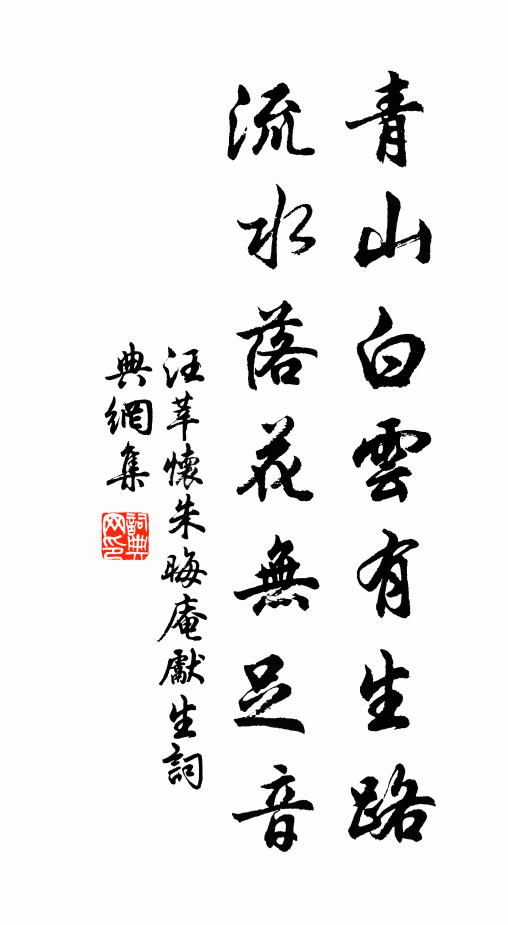 青山白雲有生路
流水落花無足音
汪莘懷朱晦庵獻生詞
典網集
詞典
网印